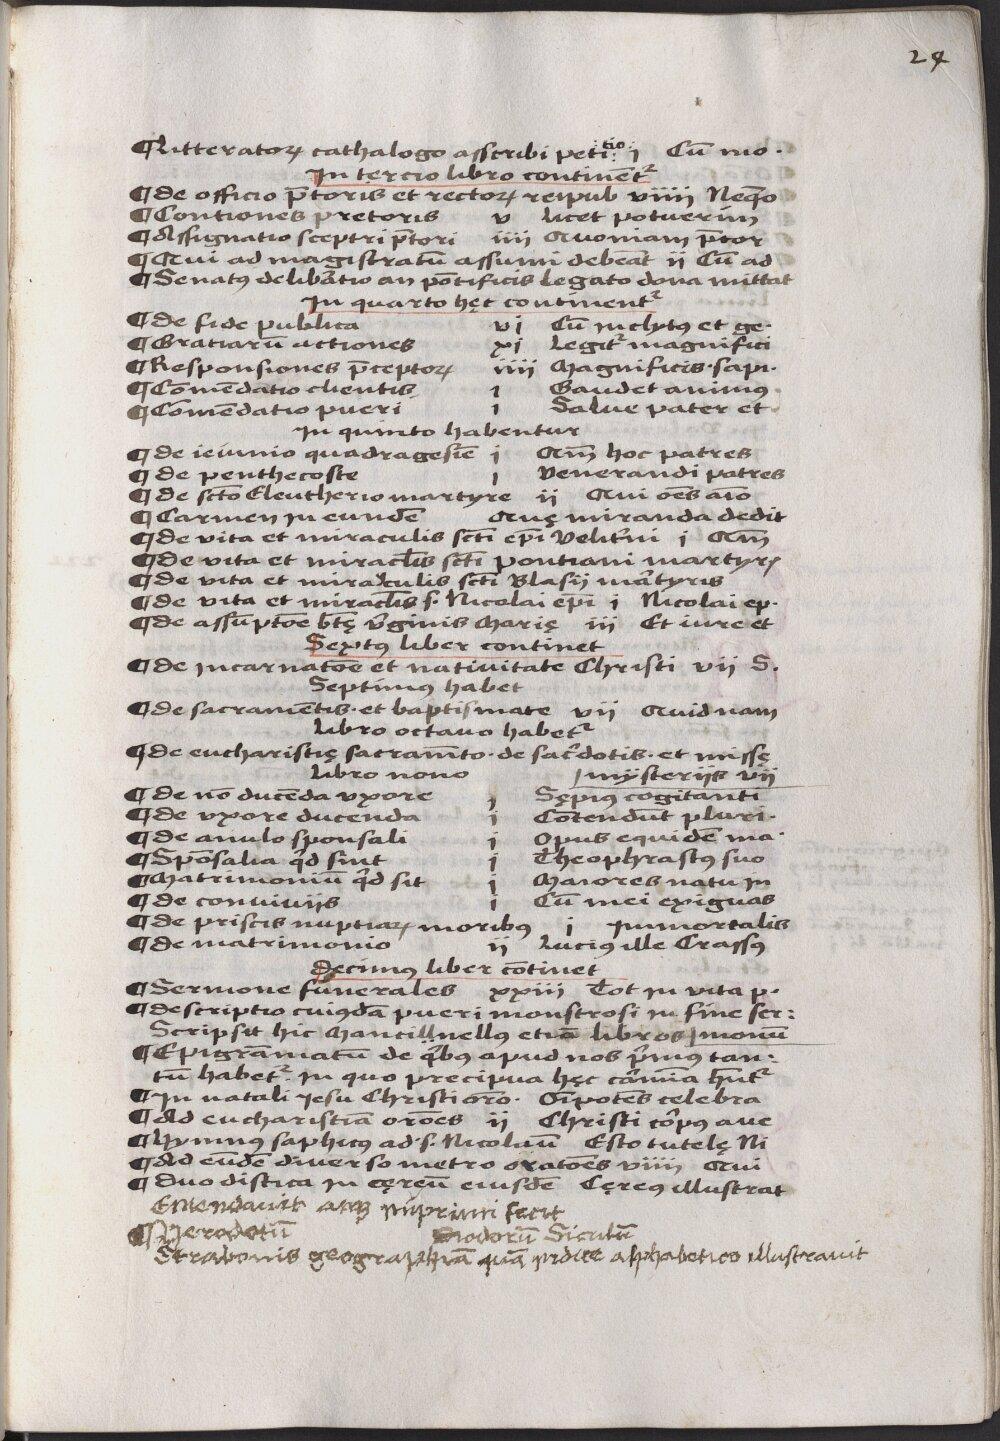 24
¶ Litteratoꝝ cathalogo asscribi petitio: i Cū mo.
In tercio libro continent᷑
¶ de officio p̄toris et rectoꝝ reipub viiii Neq̄o
¶ Contiones pretoris v licet potuerim
¶ Assignatio sceptri p̄tori iiii Quoniam p̄tor
¶ Qui ad magistratū assumi debeat ii Cū ad
¶ Senatꝰ delibatio an pōtificis legato dona mittat
In quarto hęc continent᷑
¶ de fide publica vi Cū inclytꝰ et ge.
¶ Gratiarū actiones xi Legit᷑ magnifici
¶ Responsiones p̄ceptoꝝ iiii Magnificis. sapi.
¶ Comēdatio clientis i Gaudet animꝰ
¶ Comēdatio pueri i Salue pater et
In quinto habentur
¶ de ieiunio quadragesīe i Qm̄ hoc patres
¶ de penthecoste i Venerandi patres
¶ de scto Eleutherio martyre ii Qui oēs aīo
¶ Carmen in eundē Quę miranda dedit
¶ de vita et miraculis scti epī Velit̄ni i Qm̄
¶ de vita et miraclis scti Pontiani martyꝝ
¶ de vita et miraculis scti Blasij martyris
¶ de vita et miraclis s. Nicolai epī i Nicolai ep.
¶ de assūptōe btę v̄ginis Marię iii Et iure et
Sextꝰ liber continet
¶ de incarnatōe et nativitate Christi vii S.
Septimꝰ habet
¶ de sacramētis. et baptismate vii Quidnam
Libro octauo habet᷑
¶ de eucharistię sacram̄to. de sac̄dotis. et missę
Libro nono mysteriis vii
¶ de nō ducēda vxore i Sępiꝰ cogitanti
¶ de vxore ducenda i Cōtendūt pluri.
¶ de anulo sponsali i Opus equidē ma.
¶ Spōsalia qd sint i Theophrastꝰ suo
¶ Matrimoniū qd sit i Maiores natu in
¶ de conviviis i Cū mei exiguas
¶ de priscis nuptiaꝝ moribꝰ i Immortalis
¶ de matrimonio ii Lucius ille Crassꝰ
Decimꝰ liber cōtinet
¶ Sermone funerales xxiii Tot in vita p.
¶ descriptio cuiꝰdā pueri monstrosi in fine ser:
Scripsit hic Mancillnellꝰ etiā libros monū
¶ Epigramatū de qbꝰ apud nos p̄mꝰ tan:
tū habet᷑. in quo precipua hęc carmīa hn̄t᷑
¶ In natali Iesu Christi orō. Oīpotēs celebra
¶ Ad eucharistiā orōes ii Christi corpꝰ ave
¶ Hymnꝰ saphicꝰ ad. s. Nicolaū Esto tutelę Ni
¶ Ad eūdē diverso metro oratōes viiii Qui
¶ Duo distica in cęreū eiusdē Cęreꝰ illustrat
Emendavit atqꝫ imprimi fecit
¶ Herodotū Diodorū Siculū
Strabonis geographiā quā indice alphabetico illustravit